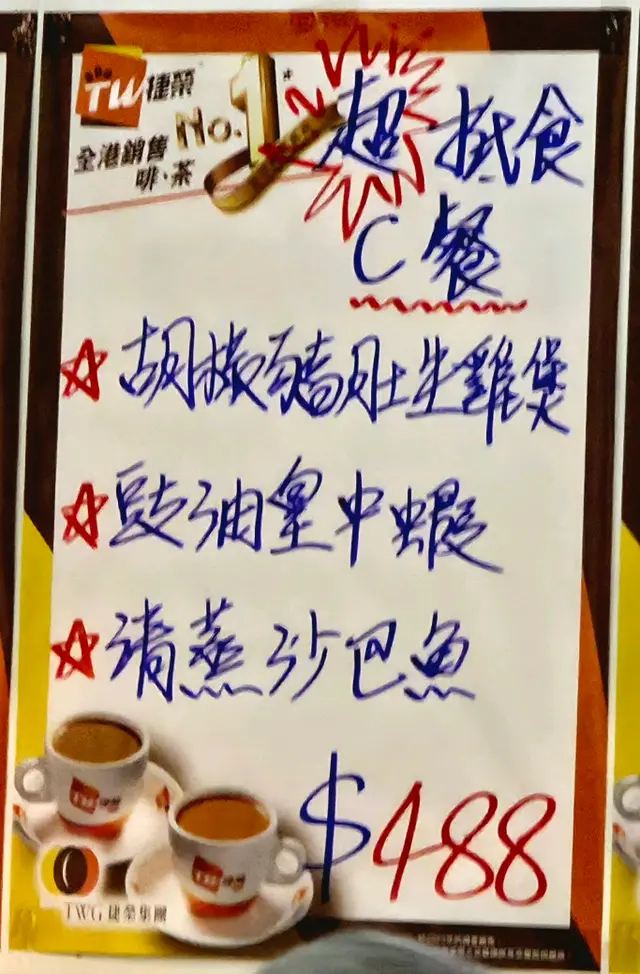 TW捷榮
No.1*
全港銷售
啡、茶
超 抵食
C 餐
☆ 胡椒豬肚生雞煲
☆ 豉油皇中蝦
☆ 清蒸沙巴魚
$488
TWG 捷榮集團